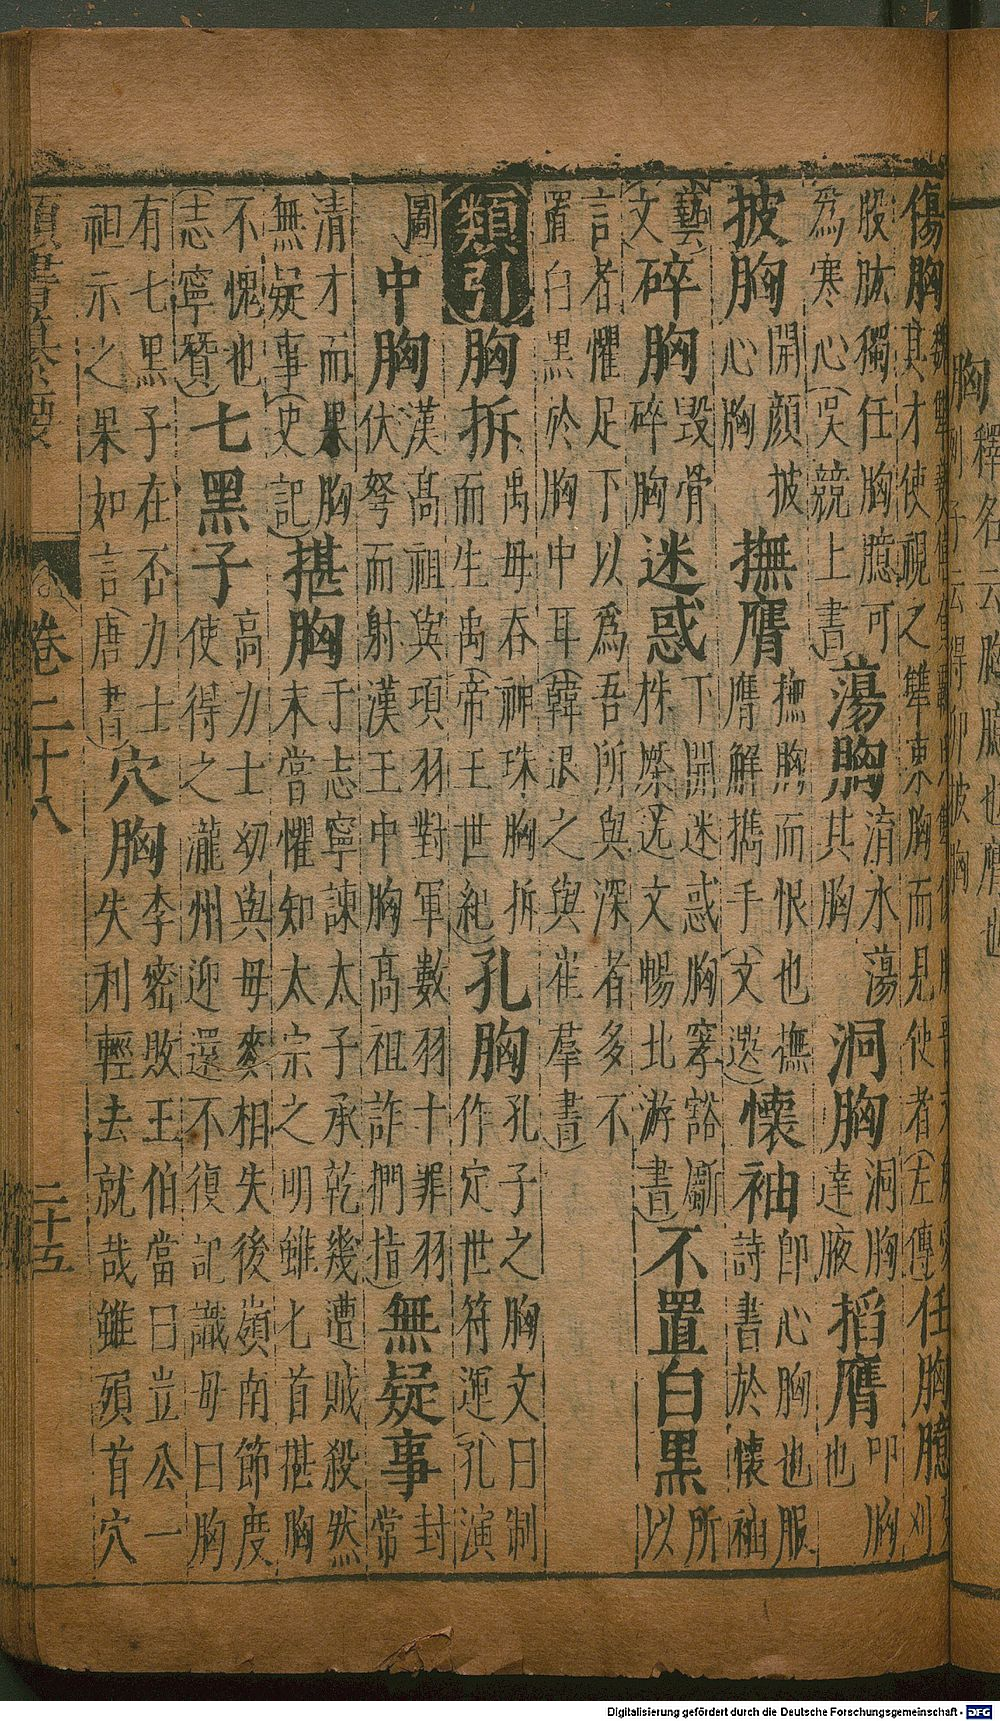 傷胸
其才使視之犨束胸而見使者(左傳)
任胸臆
股肱獨任胸臆可
為寒心(吳競上書)
蕩胸
淯水蕩
其胸
洞胸
洞胸
達腋
搯膺
叩胸
也
披胸
開顏披
心胸
撫膺
撫胸而恨也撫
膺解擕手(文選)
懷袖
即心胸也服
詩書於懷袖
(藝
文)
碎胸
毀骨
碎胸
迷惑
下開迷惑胸穽豁斸
株橜(送文暢北游書)
不置白黑
所
以
言者懼足下以為吾所與深者多不
置白黑於胸中耳(韓退之與崔羣書)
類引
胸拆
禹母吞神珠胸拆
而生禹(帝王世紀)
孔胸
孔子之胸文曰制
作定世符運(孔演
圖)
中胸
漢高祖與項羽對軍數羽十罪羽
伏弩而射漢王中胸高祖詐捫指)
無疑事
封
常
清才而果胸
無疑事(史記)
揕胸
于志寧諫太子承乾幾遭賊殺然
未嘗懼知太宗之明雖匕首揕胸
不愧也
(志寧贊)
七黑子
高力士幼與母麥相失後嶺南節度
使得之瀧州迎還不復記識母曰胸
有七黑子在否力士
袒示之果如言(唐書)
穴胸
李密敗王伯當曰豈公一
失利輕去就哉雖殞首穴
卷二十八
二十五
Digitalisierung gefördert durch die Deutsche Forschungsgemeinschaft - DFG